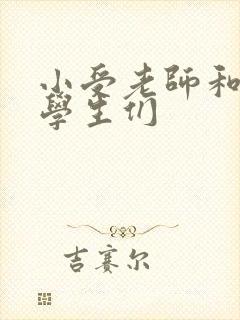 小受老師和
學生们
吉赛尔